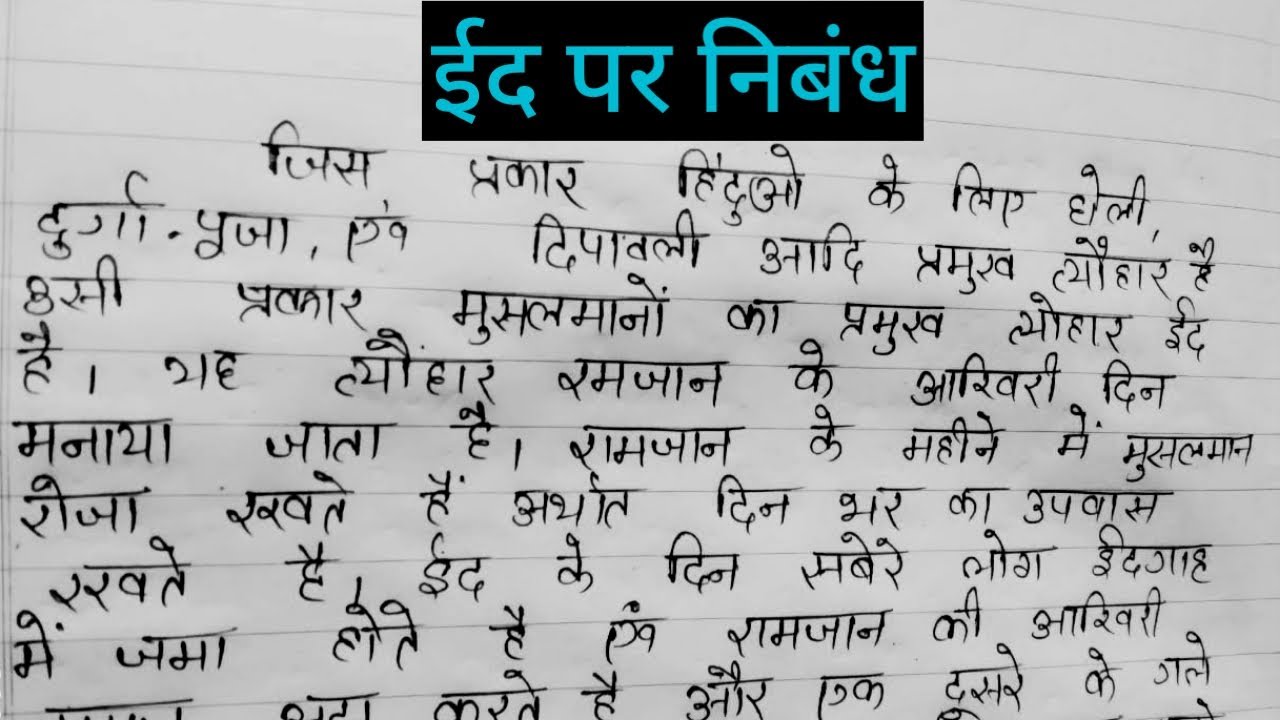 ईद पर निबंध
जिस प्रकार हिंदुओ के लिए होली,
दुर्गा-पूजा, एवं दिपावली आदि प्रमुख त्यौहार है
उसी प्रकार मुसलमानों का प्रमुख त्योहार ईद
है। यह त्यौंहार रमजान के आखिरी दिन
मनाया जाता है। रामजान के महीने में मुसलमान
रोजा रखते हैं अर्थात दिन भर का उपवास
रखते है। ईद के दिन सबेरे लोग ईदगाह
में जमा होते है एवं रामजान की आखिरी
करते है और एक दूसरे के गले